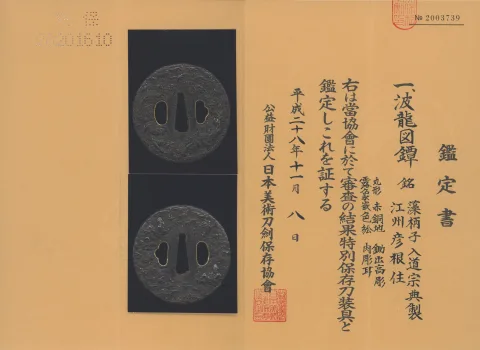 № 2003739
鑑定書
一 波龍図鐔 銘 藻柄子入道宗典製
江州彦根住
丸形 赤銅地 鋤出高彫
露象嵌色絵 肉彫耳
右は當協會に於て審査の結果特別保存刀装具と
鑑定しこれを証する
平成二十八年十一月八日
公益財團法人日本美術刀劍保存協會